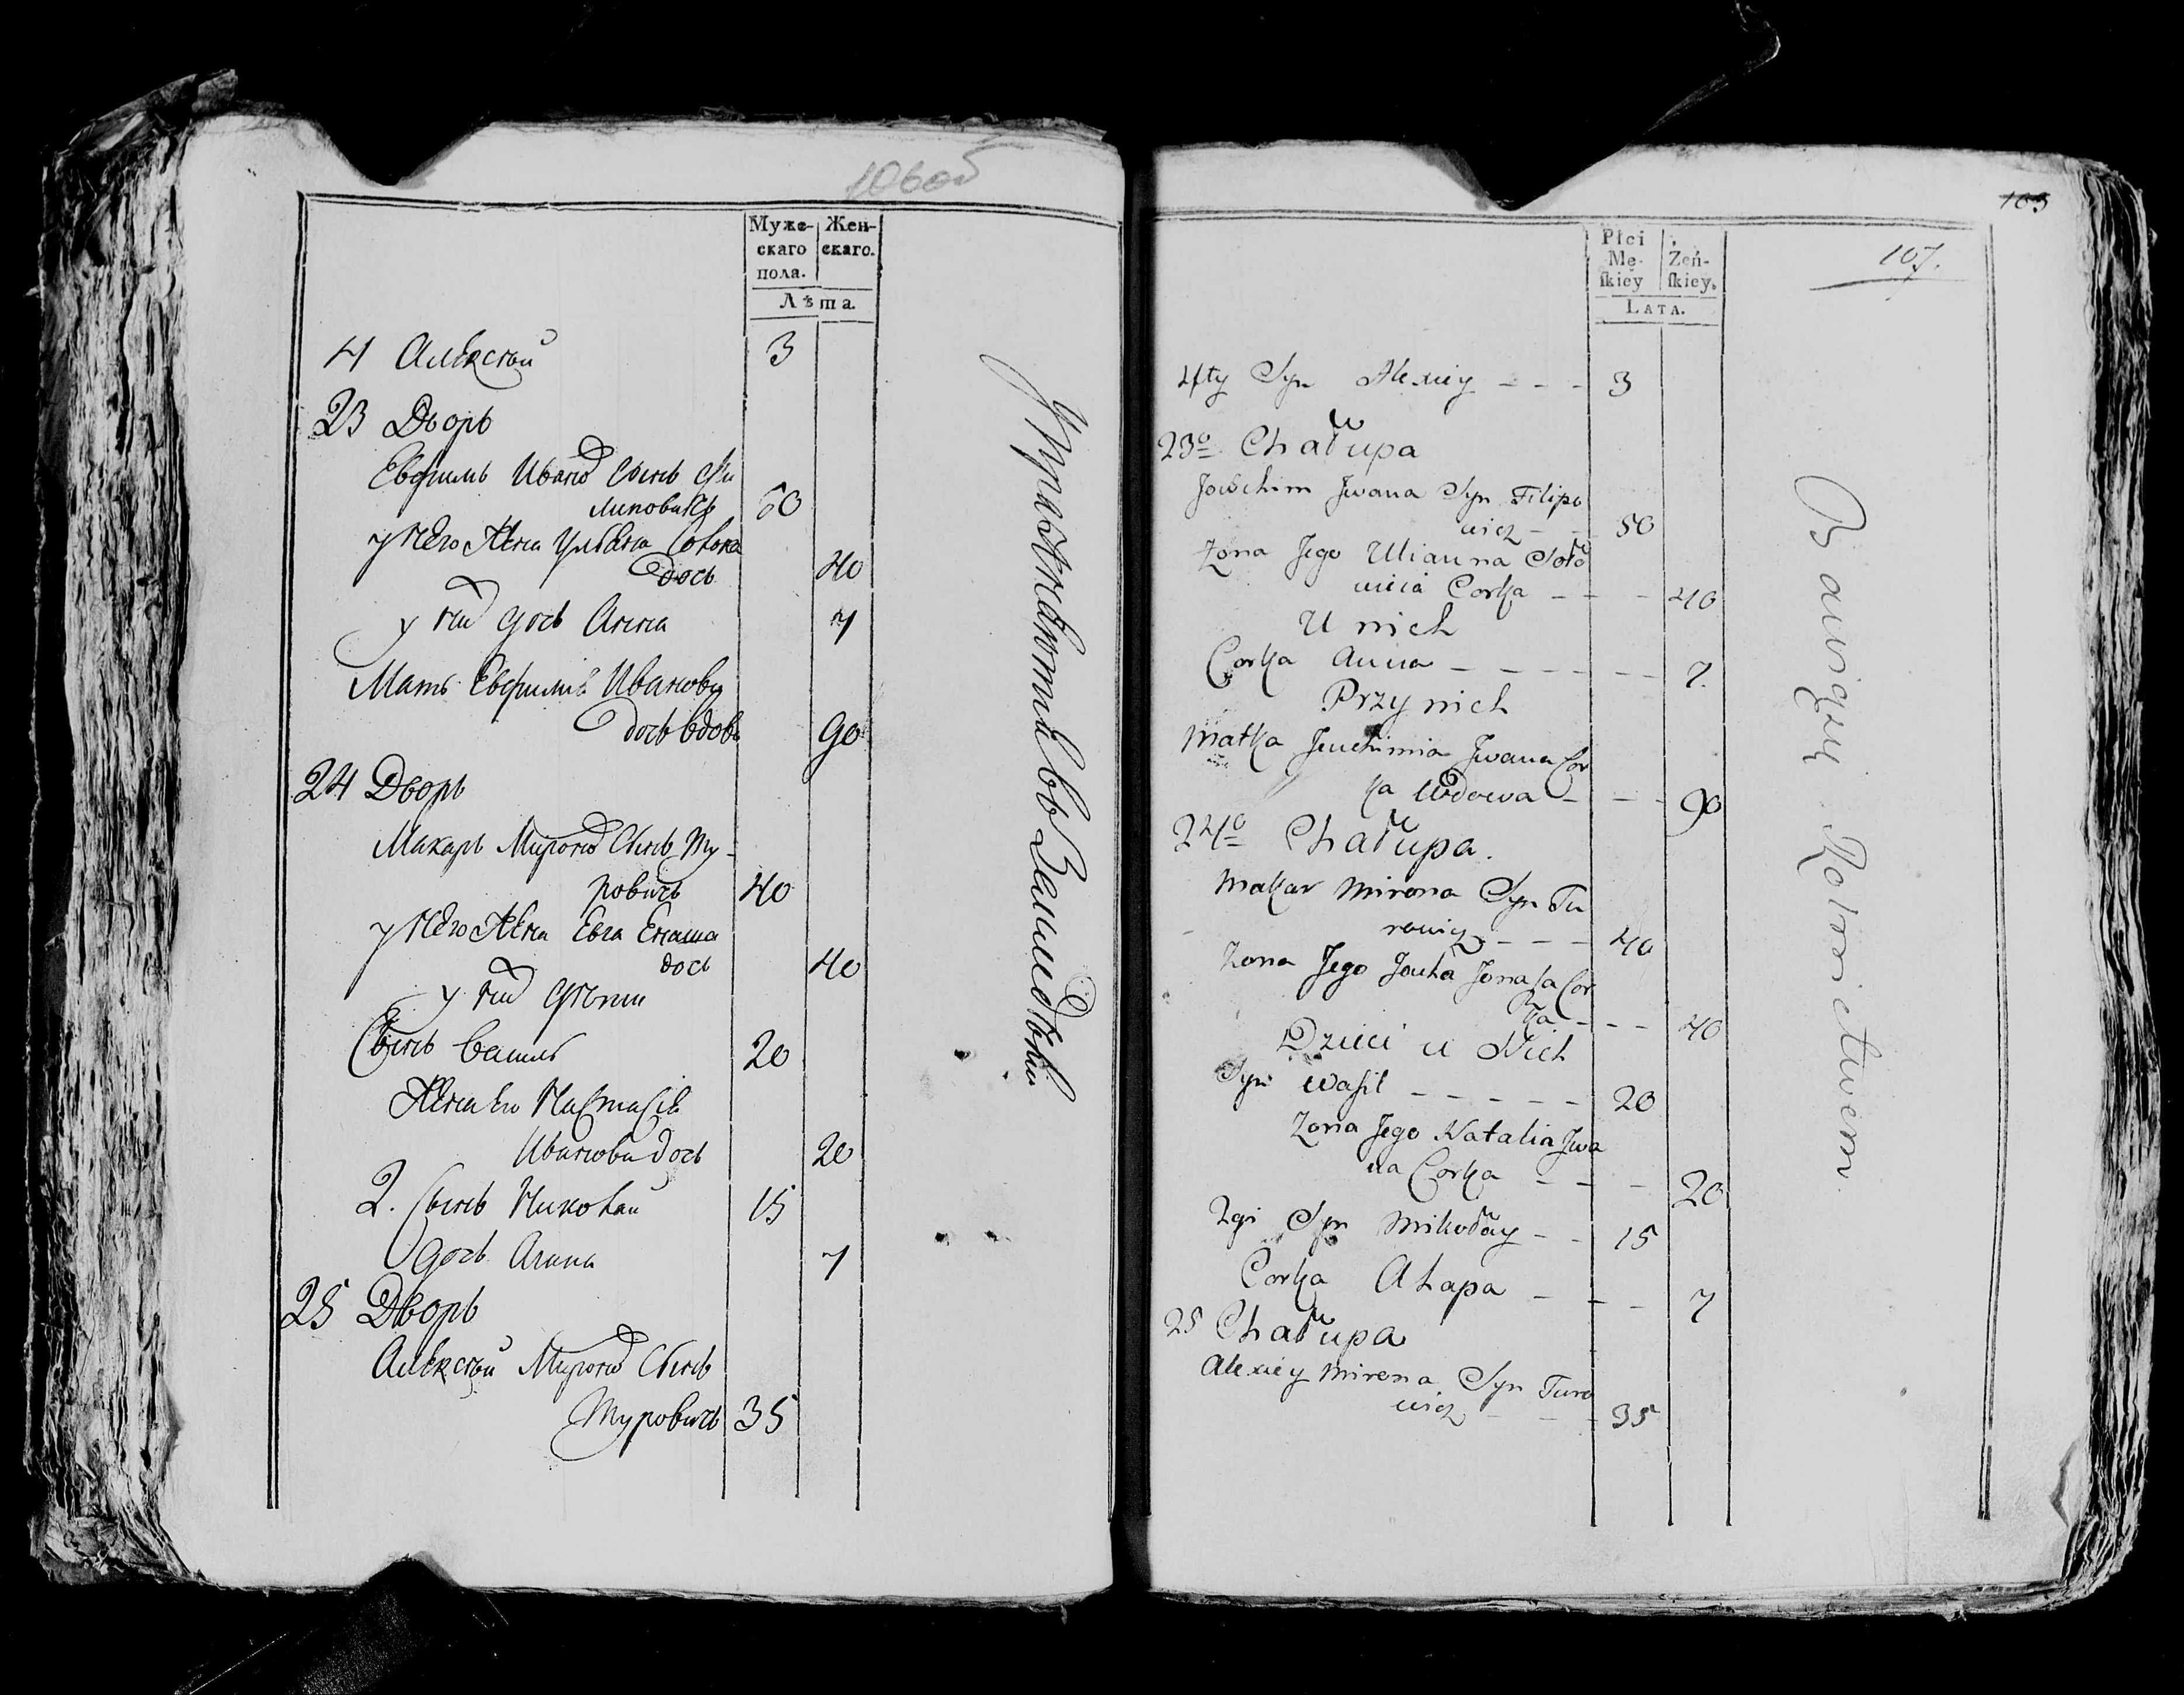 106об
Муже- Жен-
скаго скаго.
пола.
Лѣта.
4 Алексѣй 3
23 Дворъ
Евфимъ Ивановъ Сынъ Фи
липовичъ 60
у него Жена Ульяна
дочь 40
у них дочь Анна 7
Мать Евфимия Иванова
дочь вдова 90
24 Дворъ
Макаръ Миронов Сынъ Ту-
ровичъ 40
у него Жена Евга
дочь 40
у них дети
Сынъ Василь 20
Жена Ею Настасія
Иванова дочь 20
2. Сынъ Николай 15
дочь Агапа 7
25 Дворъ
Алексѣй Миронов Сынъ
Туровичъ 35
Упражняются въ Земледелии
103
107.
Płci Żeń-
Mę- skiey.
skiey
LATA.
4ty Syn Alexiey - - - 3
23o Chałupa
Jochim Jwana Syn Filipo
wicz - - 50
Zona Jego Ulianna Soło
wieia Corka - - - 40
U nich
Corka Anna - - - - - - 7.
Przy nich
Matka Jeuchimia Jwana Cor
ka Wdowa - - - 90
24o Chałupa.
Makar Mirona Syn Tu
rowicz - - - 40
Zona Jego Jeuha Jonasa Cor
ka - - - 40
Dzieci u Nich
Syn Wasil - - - - - 20
Zona Jego Natalia Jwa
na Corka - - - 20
2gi Syn Mikołay - - 15
Corka Ahapa - - - 7
25 Chałupa
Alexiey Mirona Syn Turo
wicz - - - 35
Bawiący Rolnictwem